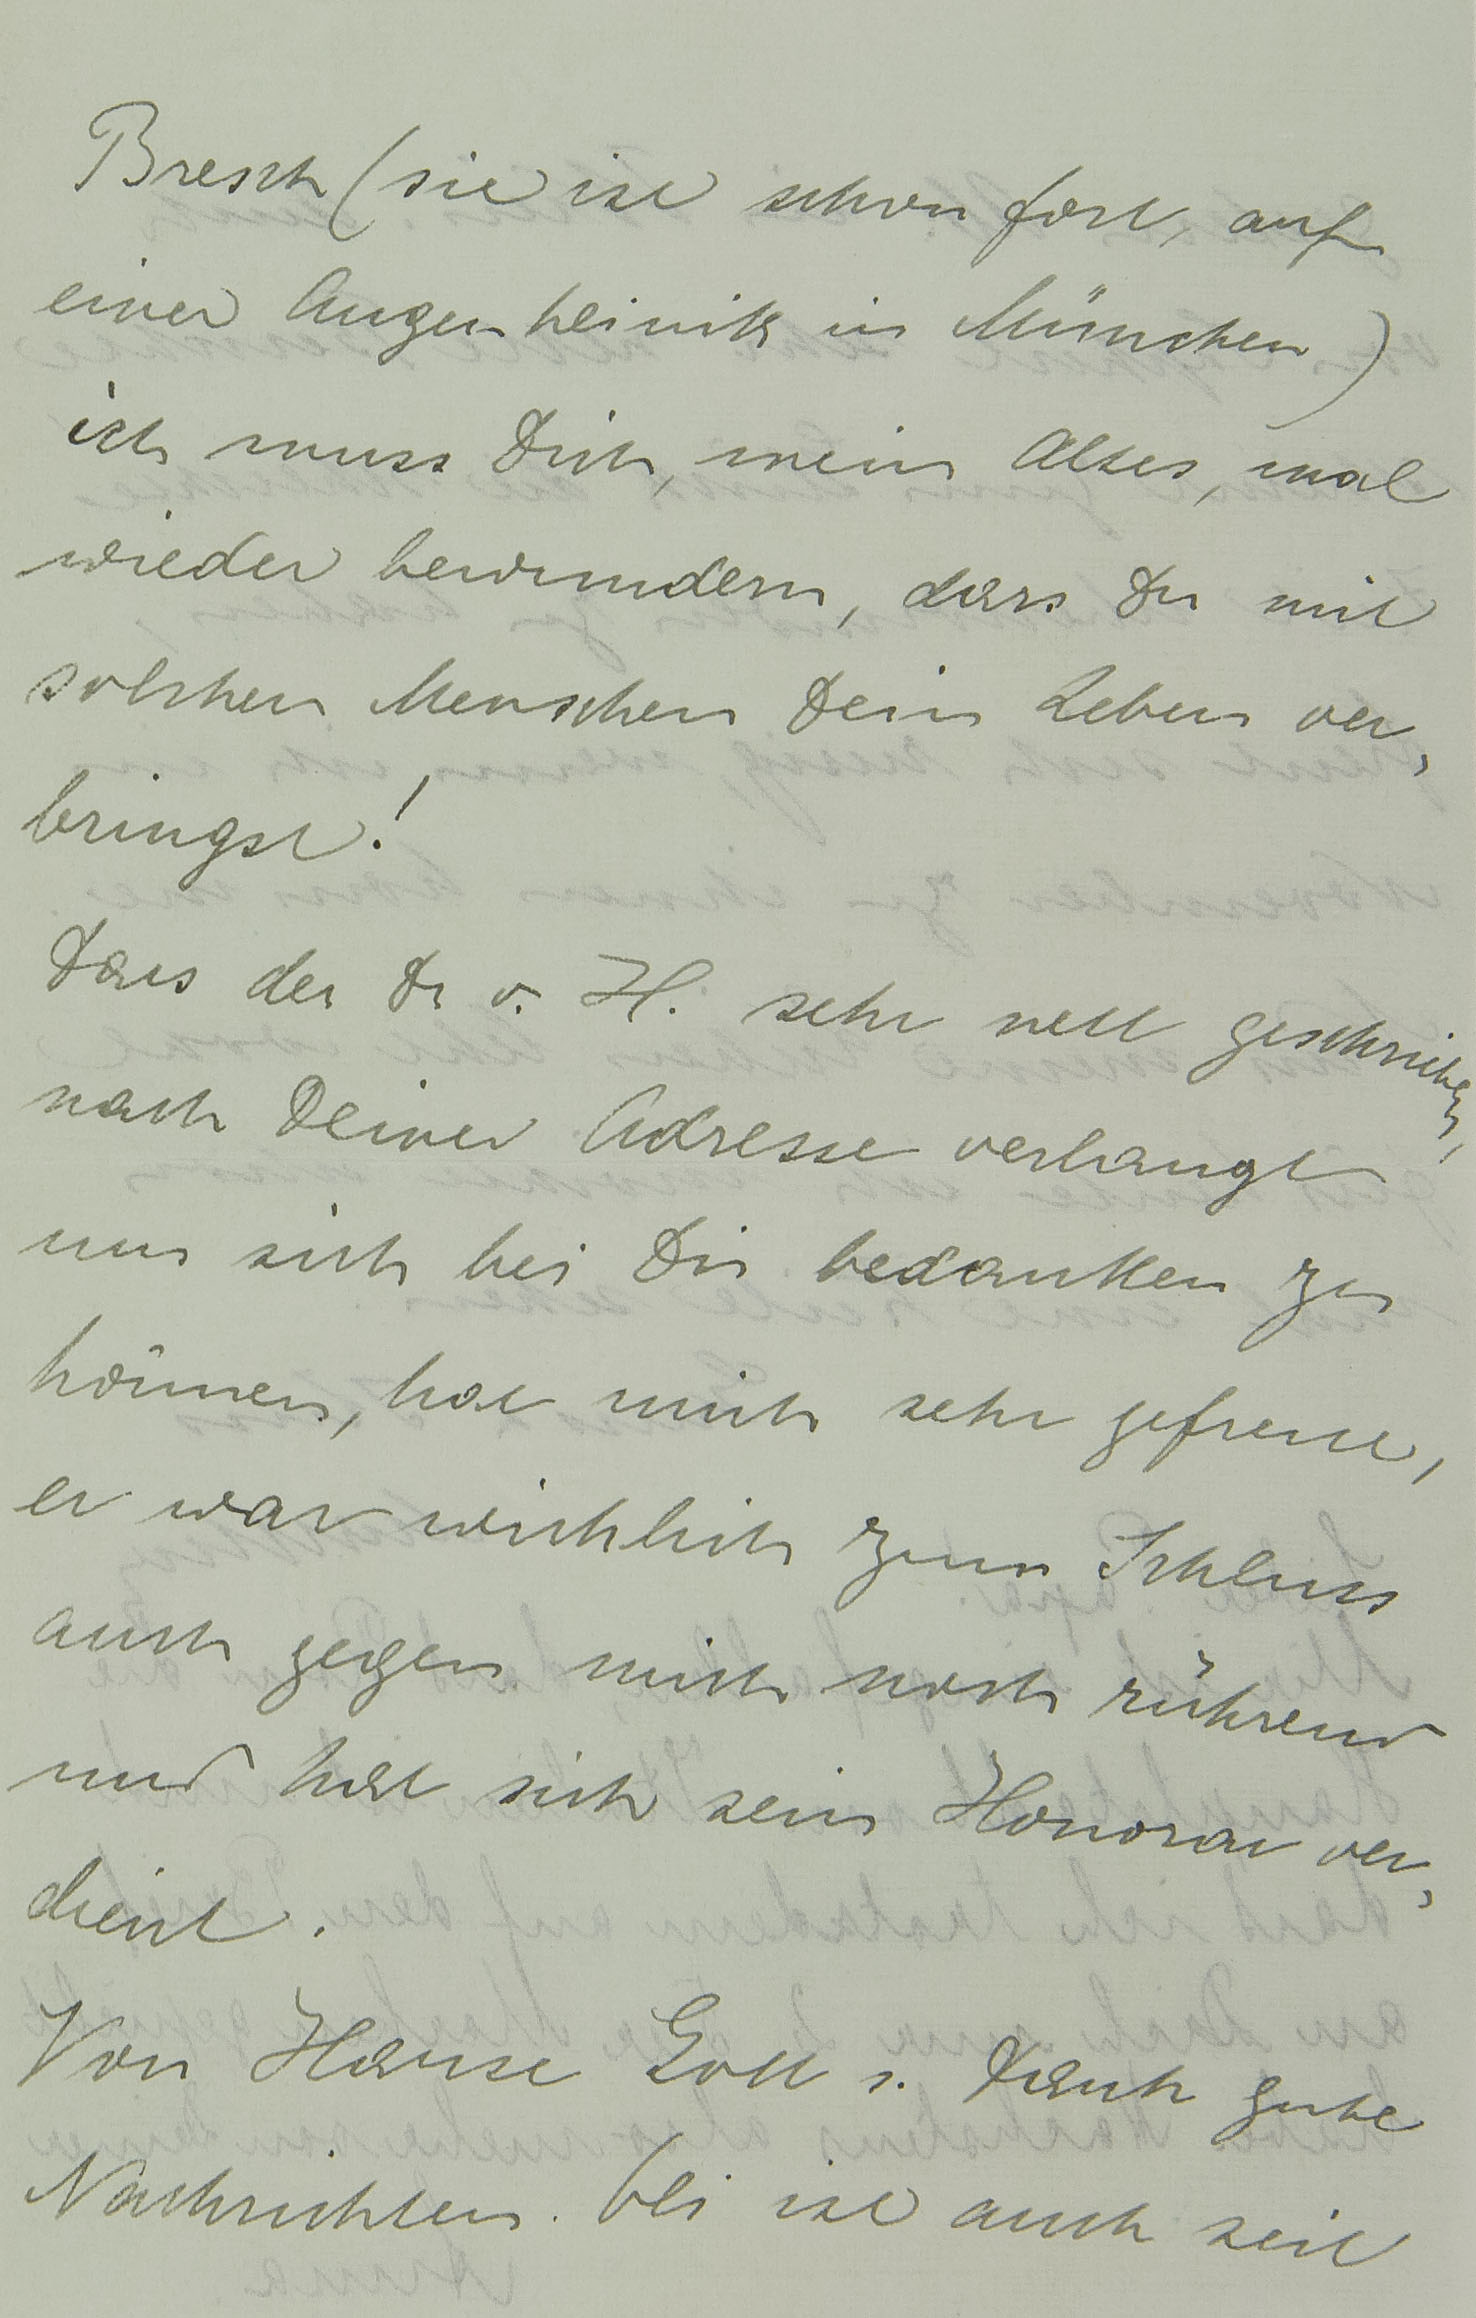 Bresch (sie ist schon fort, auf
einer Augenkleinik in München)
ich muss Dich, mein Altes, mal
wieder bewundern, dass Du mit
solchen Menschen Dein Leben ver-
bringst!
Dass der Dr v. H. sehr nett geschrieben,
nach Deiner Adresse verlangt
um sich bei Dir bedanken zu
können, hat mich sehr gefreut,
er war wirklich zum Schluss
auch gegen mich noch rührend
und hat sich sein Honorar ver-
dient.
Von Hause Gott s. Dank gute
Nachrichten. ist auch seit